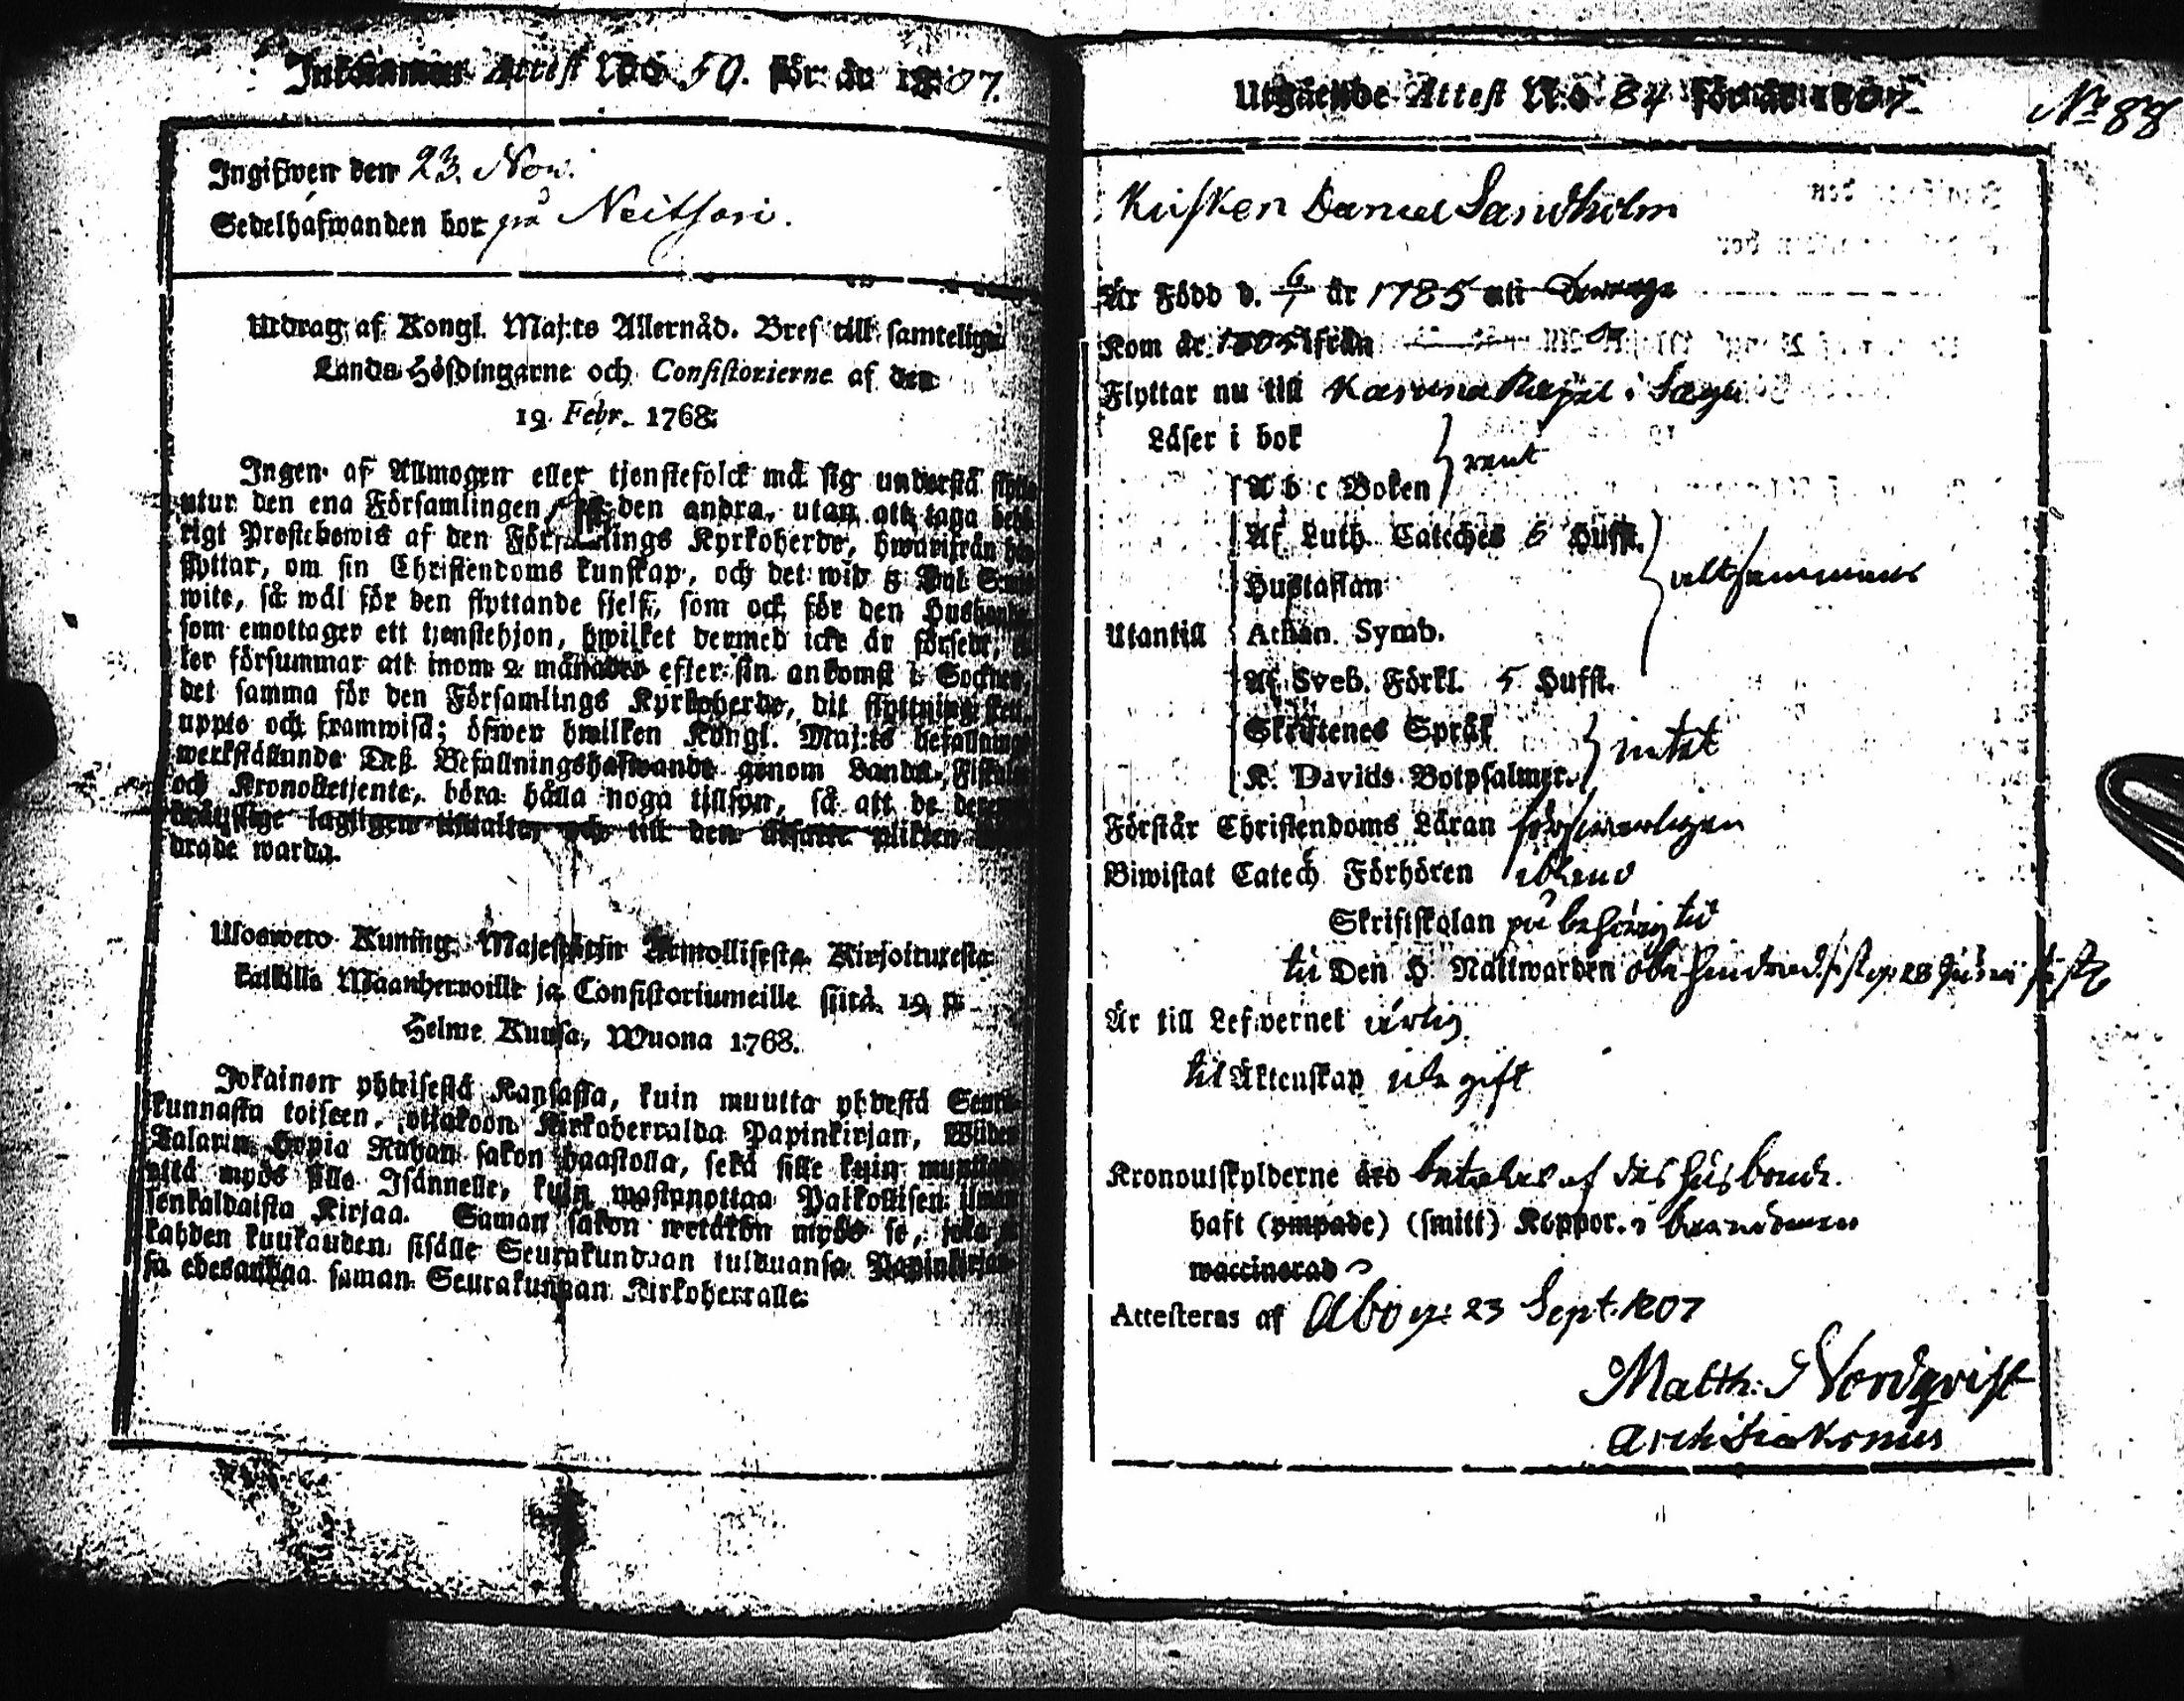 Inkommen Attest N:o 50. för år 1807.
Ingifwen den 23. Nov.
Sedelhafwanden bor på Neitsari.
Utdrag af Kongl. Maj:ts Allernåd. Bref till samtelige
Lands-Höfdingarne och Consistorierne af den
19. Febr. 1768.
Ingen af Allmogen eller tjenstefolck må sig understå flytta
utur den ena Församlingen den andra, utan att taga behö-
rigt Prestebewis af den Församlings Kyrkoherde, hwarifrån han
flyttar, om sin Christendoms kunskap, och det wid 5 Dal. S:mts
wite, så wäl för den flyttande sjelf, som ock för den Husbonde
som emottager ett tjenstehjon, hwilket dermed icke är försedt, el-
ler försummar att inom 2 månader efter sin ankomst i Socknen,
det samma för den Församlings Kyrkoherde, dit flyttning skett,
uppte och framwisa; öfwer hwilken Kongl. Maj:ts befallnings
werkställande Deß Befallningshafwande genom Lands-Fiskaler
och Kronobetjente, böra hålla noga tillsyn, så att de
lagligen tilltalte, och till den utsatte plikten
drade warda.
Uloswето Kuning. Majestetin Armollisesta Kirjoituxesta
kaikille Maanherroille ja Consistoriumeille siitä 19 p.
Helme Kuusa, Wuona 1768.
Jokainen yhteisestä Kansasta, kuin muutta yhdestä Seura-
kunnasta toiseen, ottakoon Kirkoherralda Papinkirjan, Wiiden
Talarin Hopia Rahan sakon haastolla, sekä sille kuin muuttaa
että myös sille Isännelle, kuin wastanottaa Palkollisen ilman
senkaldaista Kirjaa. Saman sakon wetäkön myös se, joka ei
kahden kuukauden sisälle Seurakundaan tulduansa Papinkirjaan-
sa edesanna saman Seurakunnan Kirkoherralle.
Utgående Attest N:o 84 för år 1807 No 88
Kusken Daniel Sandholm
Är Född d. 6/1 år 1785 uti
Kom år 1805 ifrån
Flyttar nu till Karuna Kapel i Sagu
Läser i bok } rent
A b c Boken
Af Luth. Cateches 5 Hufst. } altsammans
Hustaflan
Utantill Athan. Symb.
Af Sveb. Förkl. 5 Hufst.
Skriftenes Språk } intet
K. Davids Botpsalmer.
Förstår Christendoms Läran försvarligen
Biwistat Catech Förhören
Skriftskolan på behörig tid
til Den H. Nattwarden
Är till Lefwernet ärlig
til Äktenskap icke gift
Kronoutskylderne äro betalas af des husbonde.
haft (ympade) (smitt) Koppor. i barndomen
waccinerad
Attesteras af Åbo d: 23 Sept. 1807
Matth: Nordqvist
Archidiakonus